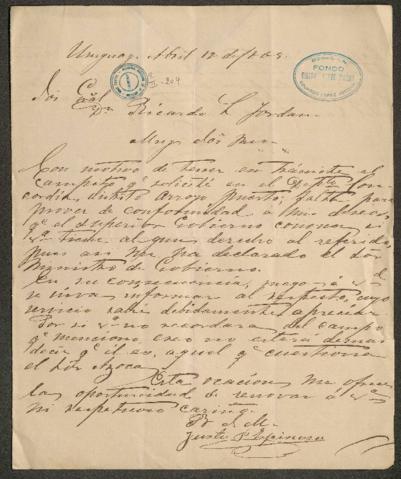 Uruguay, Abril 12 de
FONDO
Gral
Dn Ricardo L Jordan
Muy
Con motivo de tener en trámite el
campo qe solicité en el Depto Con-
cordia, distrito Arroyo falta para
de conformidad a mis deseos,
qe el Superior Gobierno conozca si
tiene algun derecho al referido,
pues asi me ha declarado el Sor
Ministro de Gobierno.
En su consecuencia, ruego á
se sirva informar al respecto, cuyo
servicio sabré debidamente apreciar
Por si no recordara del campo
qe menciono, creo no estará demas
decir qe él es, aquel qe cuestiona
el Sor
Esta ocasion me ofrece
la oportunidad de renovar á
mi respetuoso cariño
B. S. M.
Justo P. Espinosa